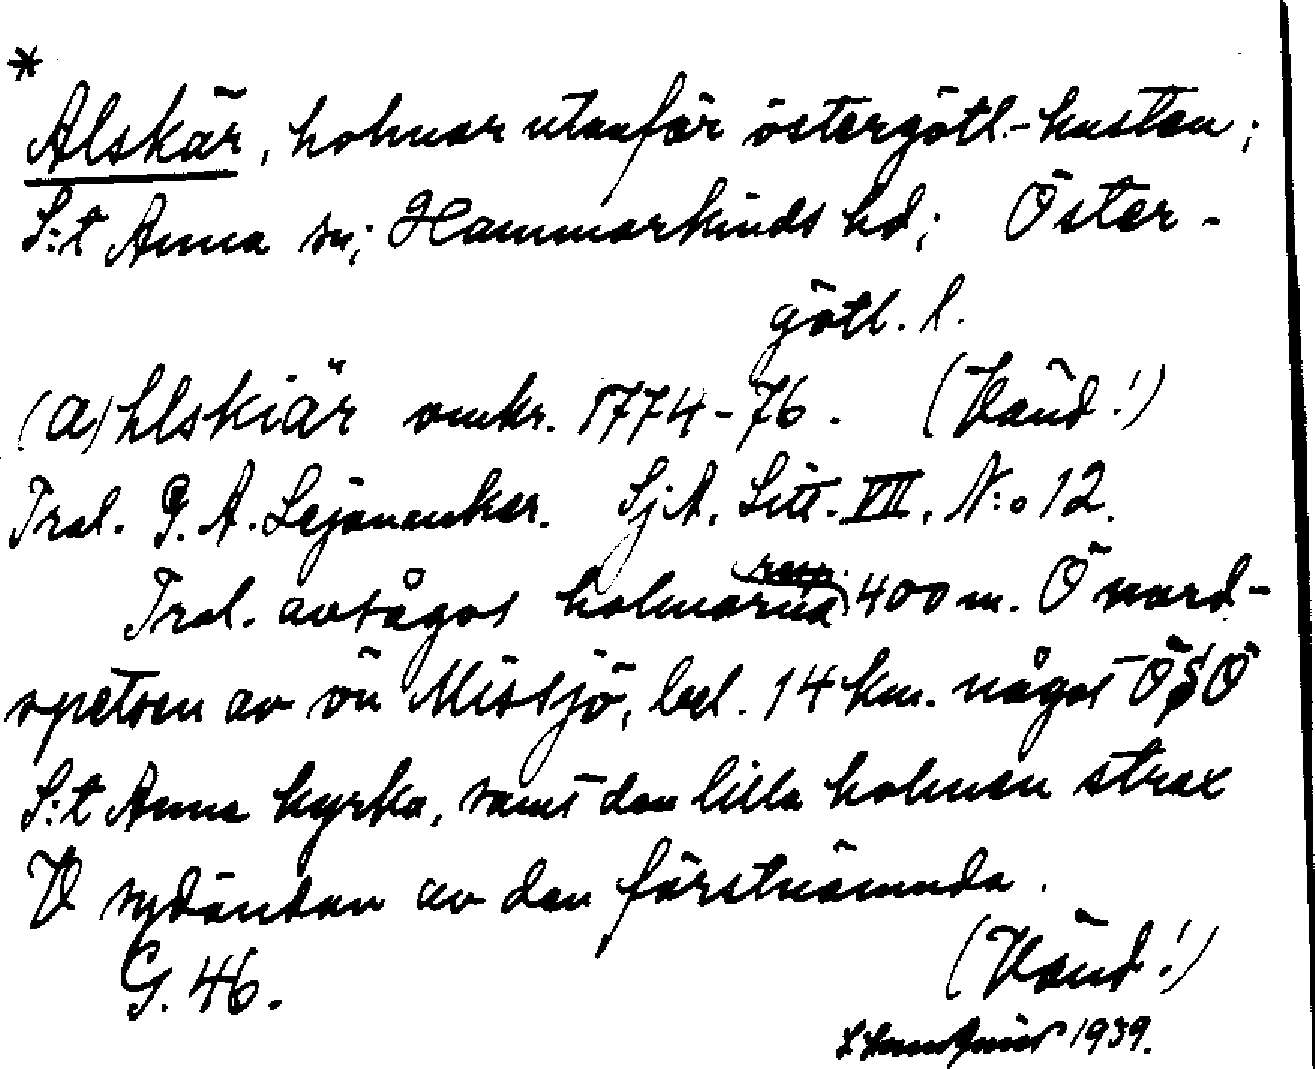 *
Alskär, holmar utanför östergötl.-kusten;
S:t Anna sn; Hammarkinds hd; Öster-
götl. l.
(a) hlskiär omkr. 1774-76. (Vänd!)
Trol. G. A. Lejonancker. Sj.A. Litt. VII. N:o 12.
Trol. avsågos holmarna resp. 400 m. Ö nord-
spetsen av ön Missjö, bel. 14 km. något ÖSÖ
S:t Anna kyrka, samt den lilla holmen strax
V sydändan av den förstnämnda.
G. 46. (Vänd!)
1939.